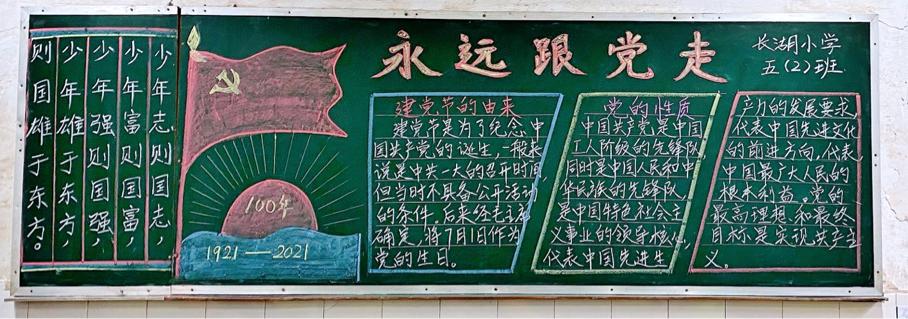 少年志则国志，
少年富则国富，
少年强则国强，
少年雄于东方，
则国雄于东方。
100年
1921——2021
永远跟党走
长湖小学
五(2)班
建党节的由来
建党节是为了纪念中
国共产党的诞生,一般来
说是中共一大的召开时间
但当时不具备公开活动
的条件,后来经毛主席
确定,将7月1日作为
党的生日。
党的性质
中国共产党是中国
工人阶级的先锋队
同时是中国人民和中
华民族的先锋队
是中国特色社会主
义事业的领导核心,
代表中国先进生
产力的发展要求,
代表中国先进文化
的前进方向,代表
中国最广大人民的
根本利益。党的
最高理想和最终
目标是实现共产主
义。